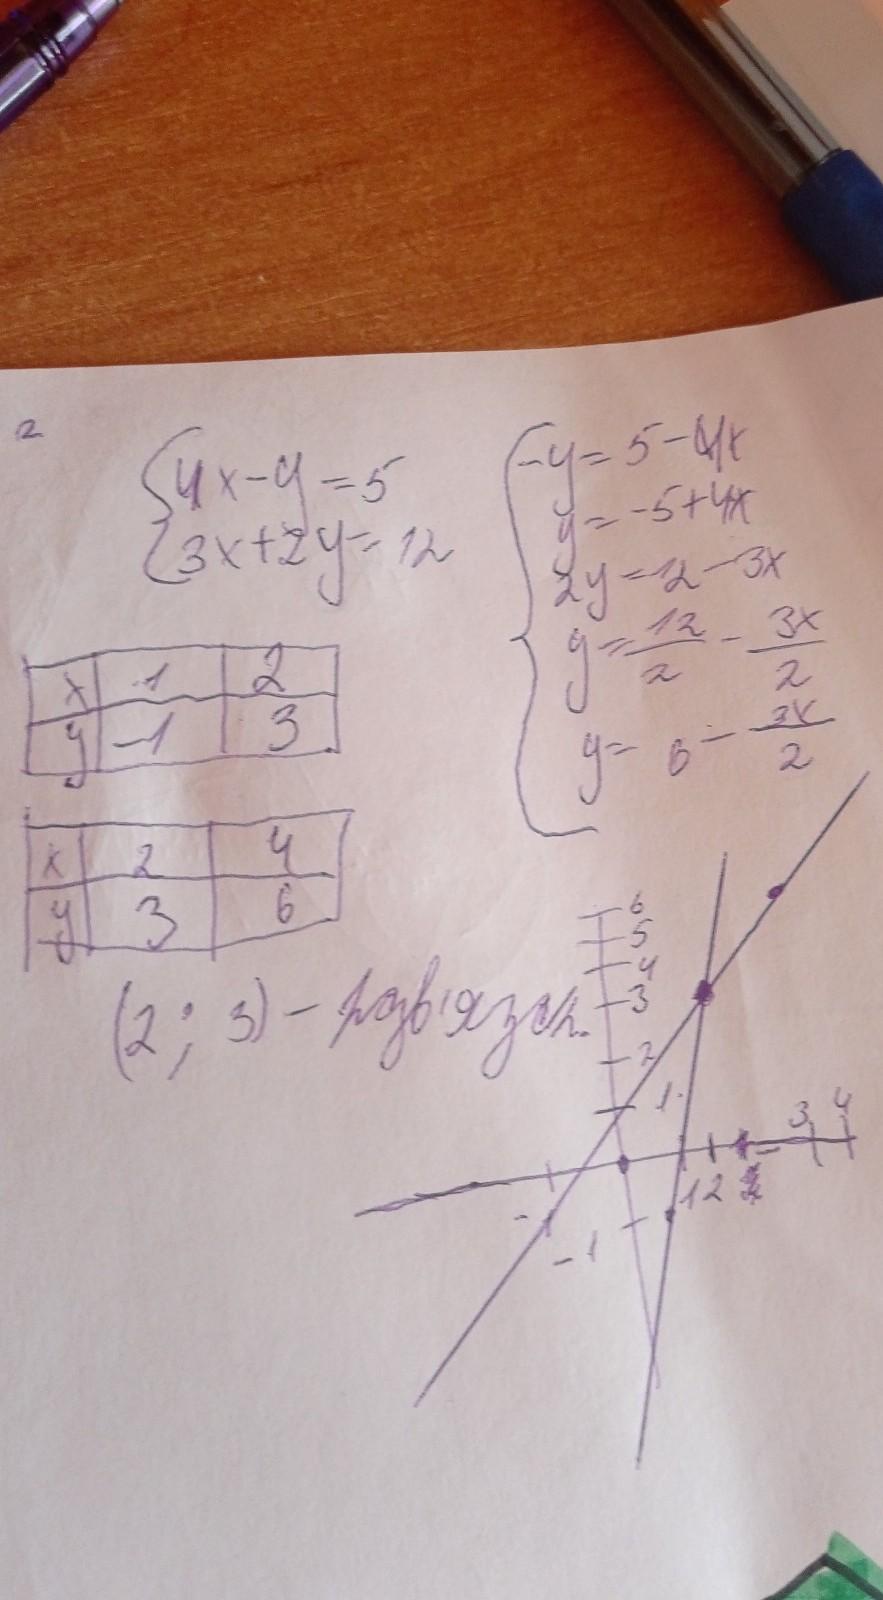 2
4x-y=5
3x+2y=12
-y=5-4x
y=-5+4x
2y=12-3x
y=12/2-3x/2
y=6-3x/2
x 1 2
y -1 3
x 2 4
y 3 6
(2; 3) - розв'язок.
6
5
4
3
2
1
-1
1 2 3 4